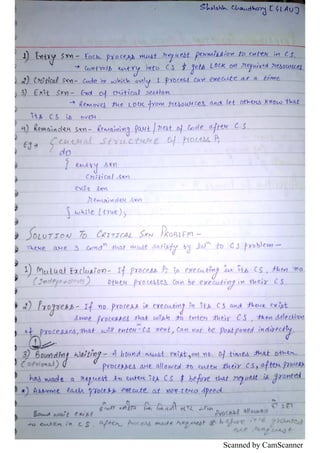 Shelekh Chaudhary [GLAU]
1) Entry Sxn - Each process must request permission to enter in C.S
→ controls entry into CS & gets LOCK on required resources
2) Critical Sxn - Code in which only 1 process can execute at a time
3) Exit Sxn - End of critical section
→ Removes the LOCK from resources and let others know that
its CS is over.
4) Remainder Sxn - Remaining Part / Rest of Code after C.S.
Eg → General Structure of process A
do
{ entry sxn
Critical sxn
exit sxn
Remainder sxn
} while (true);
SOLUTION TO CRITICAL SXN PROBLEM -
There are 3 condn that must satisfy by solⁿ to CS problem -
1) Mutual Exclusion - If process Pi is executing in its CS, then no
(Independent) other processes can be executing in their CS
2) Progress - If no process is executing in its CS and there exist
some processes that wish to enter their CS, then selection
of processes, that will enter CS next, can not be postponed indirectly.
1
3) Bounding Waiting - A bound must exist, on no. of times that other
(optional) processes are allowed to enter their CS, after process
has made a request to enter its CS & before that request is granted
*) Assume each process execute at non-zero speed.
Bound wait exist
process allowed
to enter in CS after process made request & before it is granted
Scanned by CamScanner